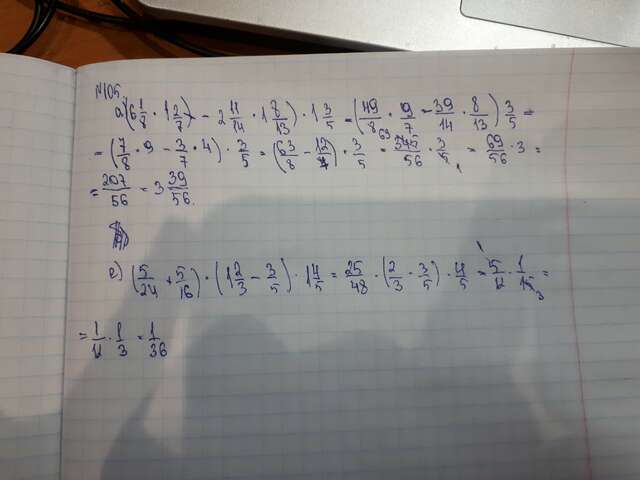 №105.
а) (6 1/8 · 1 2/7) - 2 11/14 · 1 8/13) · 1 3/5 = (49/8 · 9/7 - 39/14 · 8/13) 3/5 =
= (7/8 · 9 - 3/7 · 4) · 3/5 = (63/8 - 12/7) · 3/5 = 345/56 · 3/5 = 69/56 · 3 =
= 207/56 = 3 39/56.
е) (5/24 + 5/16) · (1 2/3 - 3/5) · 1 4/5 = 25/48 · (2/3 · 3/5) · 4/5 = 5/12 · 1/15 =
= 1/12 · 1/3 = 1/36